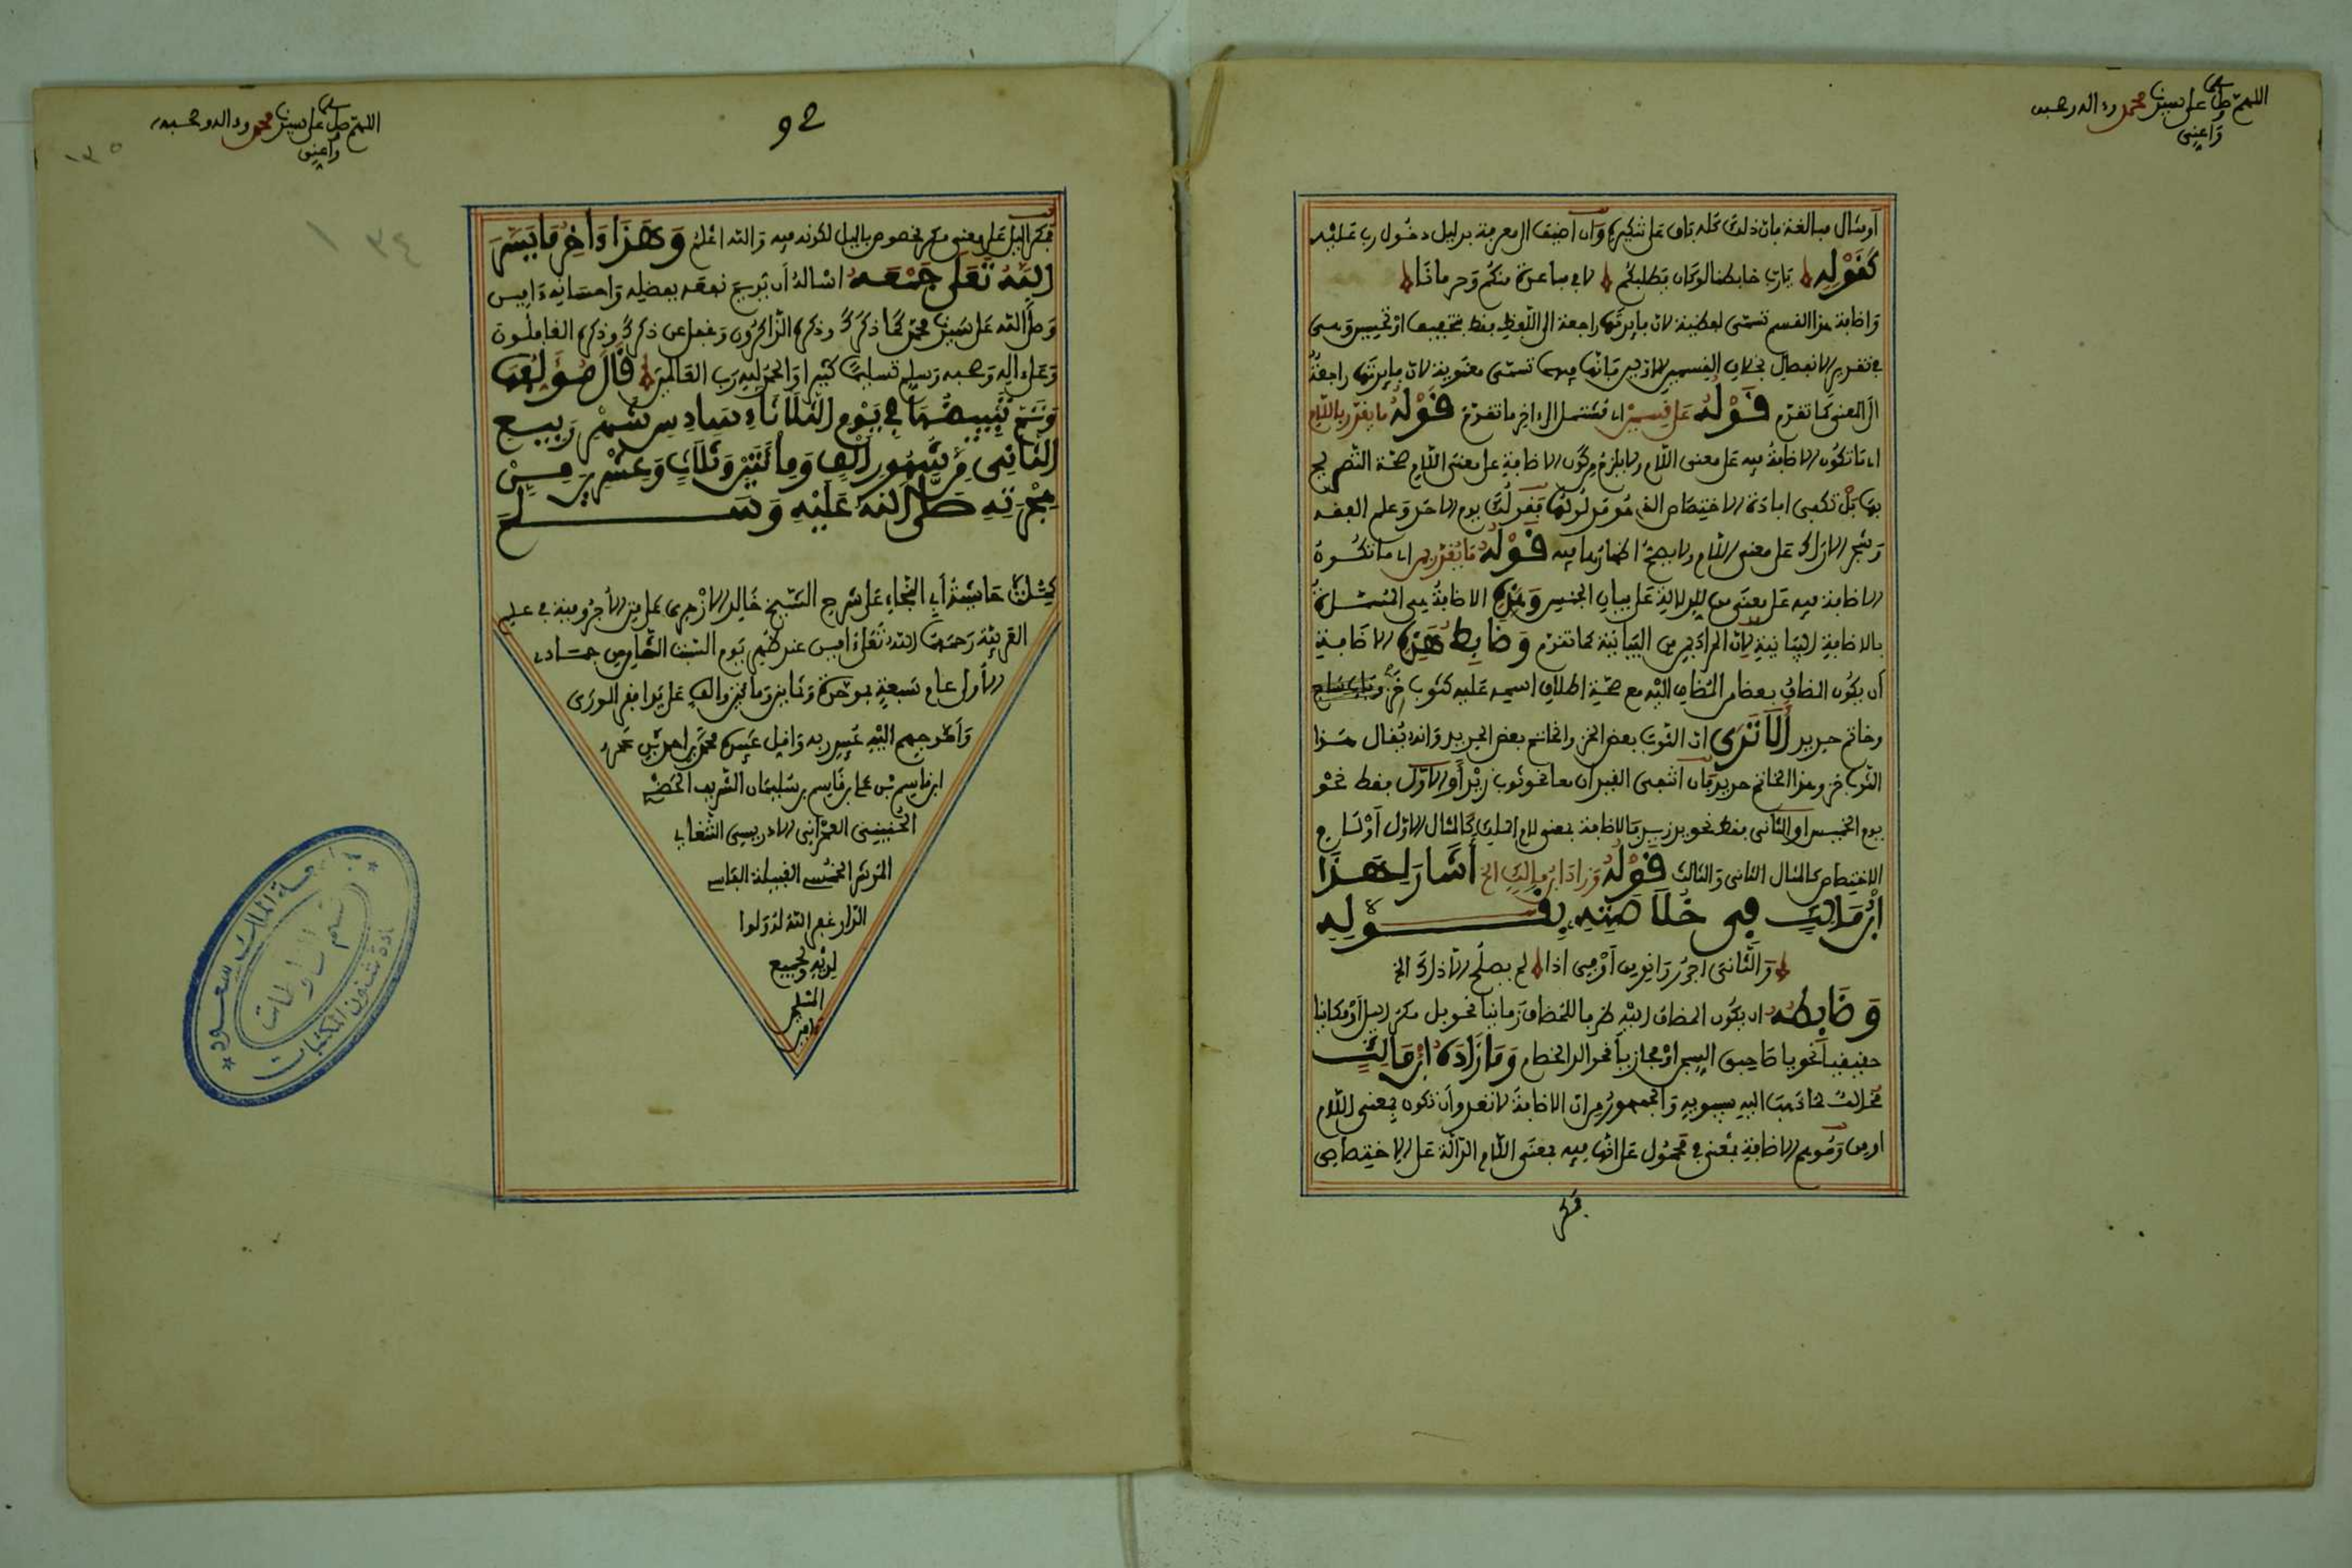 اللهم صل على سيدنا محمد وءاله وصحبه
وأعني
أو يسأل مبالغة بان ذلك كله باق على تنكيره وان أضيف الى معرفة بدليل دخول رب عليه
كقوله يا رب غابطنا لو كان يطلبكم لاقى مباعدة منكم وحرمانا
واضافة هذا القسم تسمى لفظية لان فايدتها راجعة الى اللفظ فقط بتخفيف او تحسين وهي
في تقدير الانفصال بخلاف القسمين الاولين فانها فيهما تسمى معنوية لان فايدتها راجعة
الى المعنى كما تقدم قوله على قسمين اي تشتمل الى ءاخر ما تقدم قوله ما يقدر باللام
اي ما تكون الاضافة فيه على معنى اللام ولا يلزم من كون الاضافة على معنى اللام صحة التصريح
بها بل تكفي افادة الاختصاص الذي هو مدلولها فقولك يوم الاحد وعلم الفقه
وشجر الاراك على معنى اللام ولا يصح اظهارها فيه قوله ما يقدر بمن اي ما تكون
الاضافة فيه على معنى من للدلالة على بيان الجنس وهذه الاضافة هي المسماة
بالاضافة البيانية لان المراد بمن البيانية كما تقدم وضابط هذه الاضافة
أن يكون المضاف بعض المضاف اليه مع صحة اطلاق اسمه عليه كثوب خز
وخاتم حديد ألا ترى ان الثوب بعض الخز والخاتم بعض الحديد وانه يقال هذا
الثوب خز وهذا الخاتم حديد فان انتفى القيدان معا نحو ثوب زيد أو الاول فقط نحو
يوم الخميس او الثاني فقط نحو يد زيد فالاضافة بمعنى لام الملك كالمثال الاول أو لام
الاختصاص كالمثال الثاني والثالث قوله وزاد ابن مالك الخ أشار لهذا
ابن مالك في خلاصته بقوله
والثاني اجرر وانو من أو في اذا لم يصلح الا ذاك الخ
وضابطه ان يكون المضاف اليه ظرفا للمضاف زمانيا نحو بل مكر الليل أو مكانيا
حقيقيا نحو يا صاحبي السجن او مجازيا نحو ألد الخصام وما زاده ابن مالك
مخالف لما ذهب اليه سيبويه والجمهور من ان الاضافة لا تعدو أن تكون بمعنى اللام
او من وموهم الاضافة بمعنى في محمول على انها فيه بمعنى اللام الدالة على الاختصاص
فمكر
92
اللهم صل على سيدنا محمد وءاله وصحبه
وأعني
١٣٥
١٣٤
فمكر الليل على معنى مكر مخصوص بالليل لكونه فيه والله اعلم وهذا ءاخر ما يسر
الله تعلى جمعه اسأله أن يديم نفعه بفضله واحسانه ءامين
وصلى الله على سيدنا محمد كما ذكرك وذكره الذاكرون وغفل عن ذكرك وذكره الغافلون
وعلى ءاله وصحبه وسلم تسليما كثيرا والحمد لله رب العالمين قال مؤلفها
وتم تبييضها في يوم الثلاثاء سادس شهر ربيع
الثاني من شهور ألف ومائتين وثلاث وعشرين من
هجرته صلى الله عليه وسلم
كملت حاشية أبي النجا على شرح الشيخ خالد الازهري على متن الأجرومية في علم
العربية رحمهما الله تعلى ءامين عند ظهر يوم السبت الخامس جمادى
الأول عام سبعة وثمانين ومائتين والف على يد افقر الورى
وأحوجهم اليه عبيد ربه واقل عبيده محمد بن احمد بن محمد
ابن قاسم بن علي بن قاسم بن سليمان الشريف الحسني
العمراني الادريسي
القبيلة الفاسي
الدار غفر الله له ولوا
لديه ولجميع
المسلمين
ءامين
جامعة الملك سعود
قسم المخطوطات
عمادة شئون المكتبات